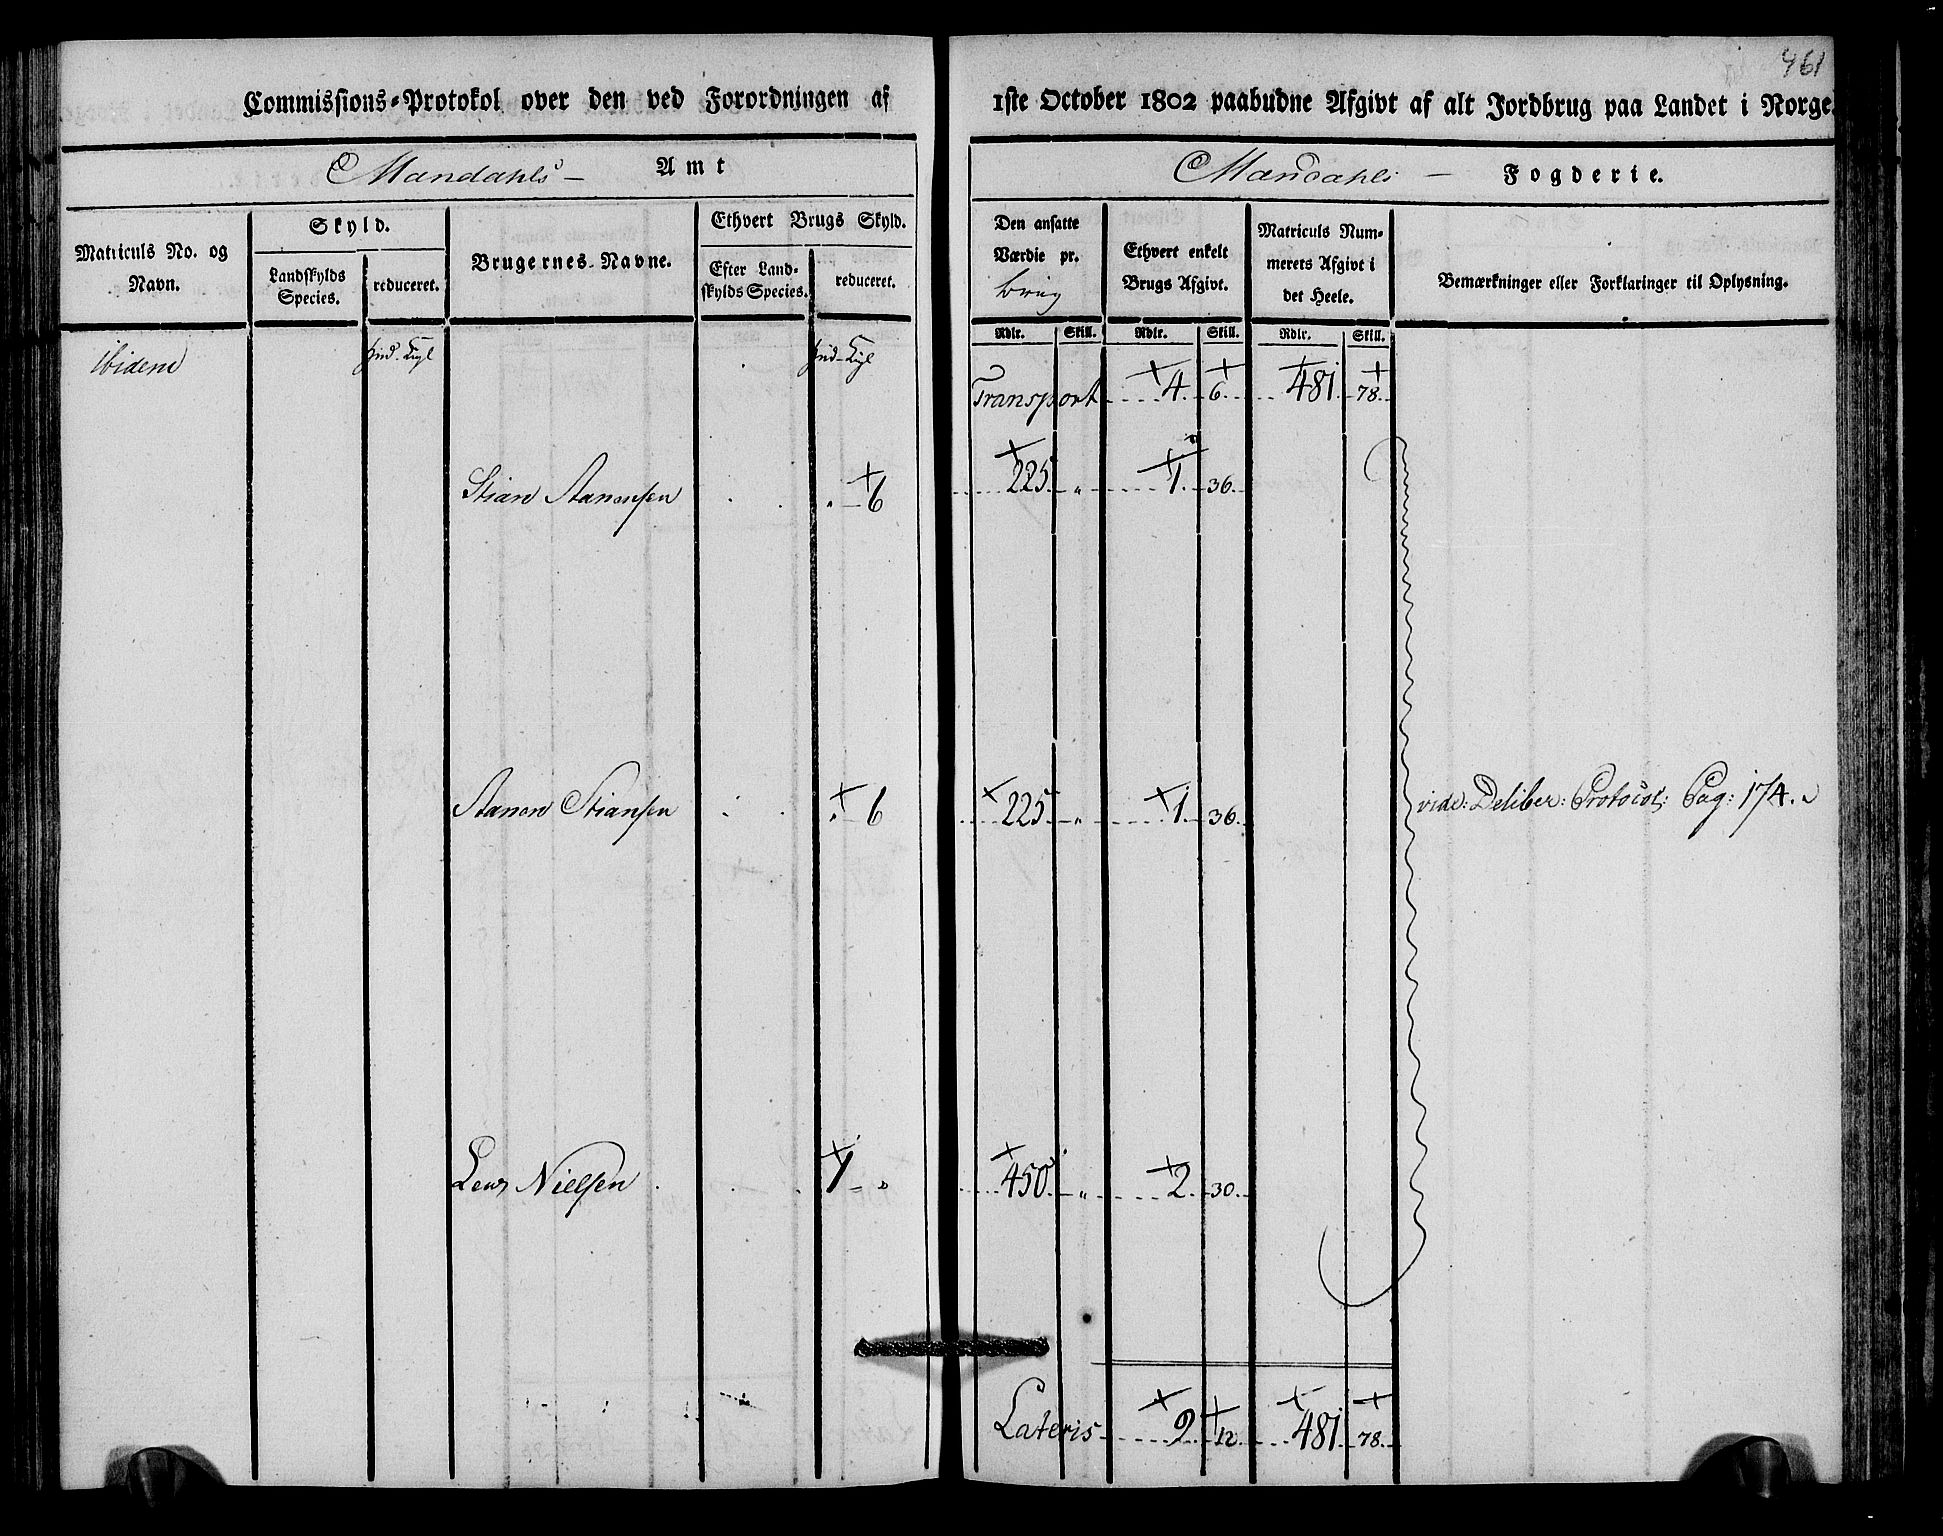 461
Commissions-Protokol over den ved Forordningen af 1ste October 1802 paabudne Afgivt af alt Jordbrug paa Landet i Norge.
Mandahls Amt
Mandahls Fogderie.
Matriculs No. og Navn.
Skyld.
Landskylds Species.
reduceret.
Brugernes Navne.
Ethvert Brugs Skyld.
Efter Landskylds Species.
reduceret.
Den ansatte Værdie pr. brug
Ethvert enkelt Brugs Afgivt.
Matriculs Nummerets Afgivt i det Heele.
Bemærkninger eller Forklaringer til Oplysning.
Rdlr. Skill. Rdlr. Skill. Rdlr. Skill.
ibidem
Transport 4 6 481 78
Stian 6 225 " 1 36
Stiansen 6 225 " 1 36 vide: Deliber: Protocol: Pag: 174.
Nielsen 1 " 450 " 2 30
Lateris 9 12 481 78